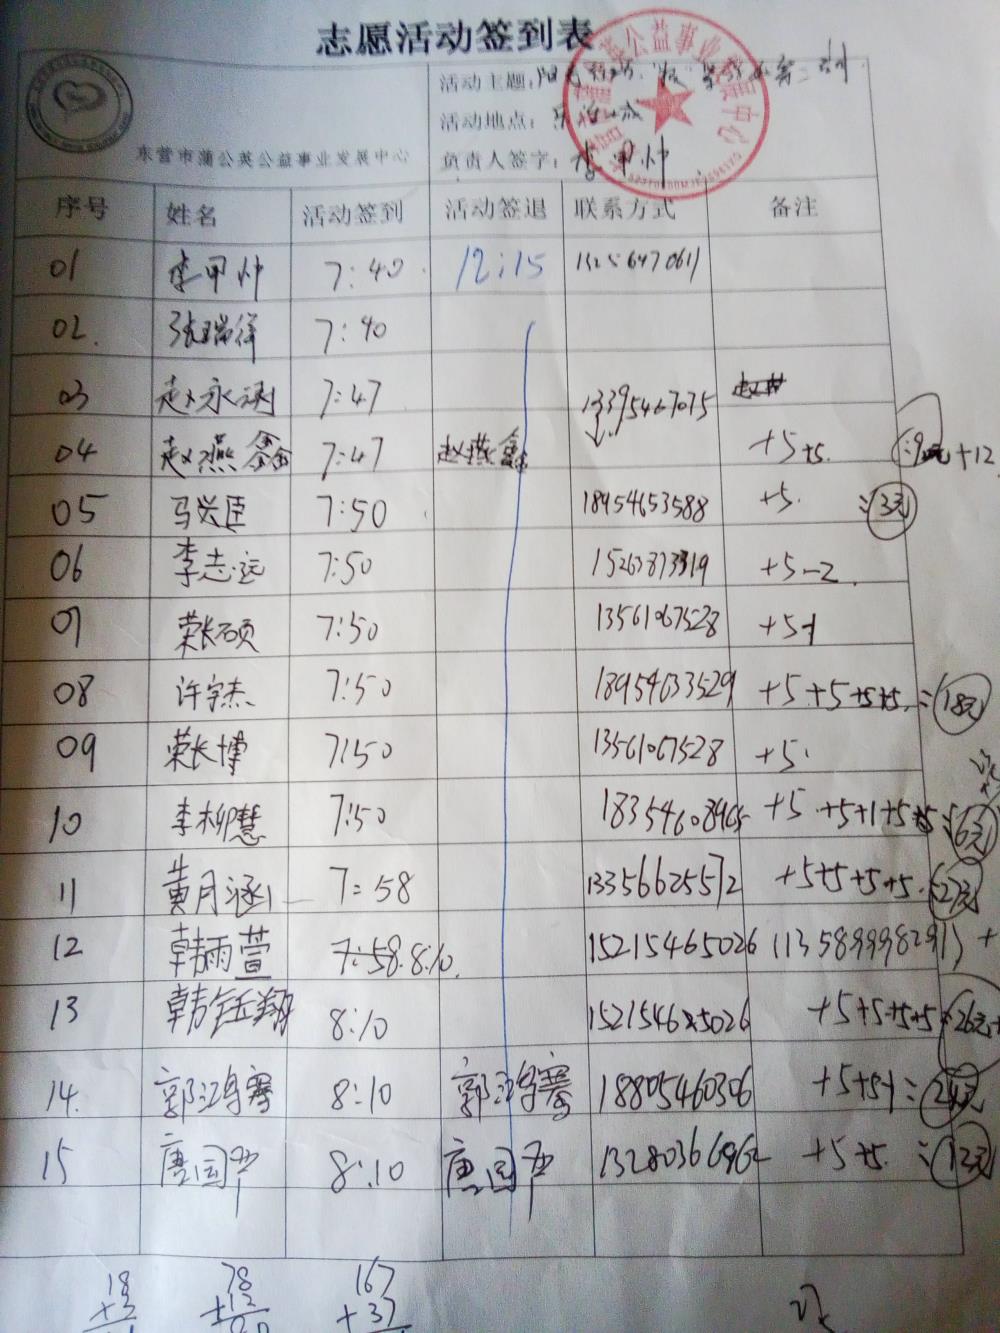 志愿活动签到表
活动主题:
活动地点:
东营市蒲公英公益事业发展中心
负责人签字: 李甲帅
序号 姓名 活动签到 活动签退 联系方式 备注
01 李甲帅 7:40 12:15 13256470611
02. 张瑞祥 7:40
03 赵永渊 7:47 13395467075
04 赵燕鑫 7:47 赵燕鑫 +5+5. +12
05 马兴臣 7:50 18954653588 +5. 3元
06 李志远 7:50 15263873319 +5-2.
07 荣长硕 7:50 13561067528 +5-1
08 许宇杰 7:50 18954633529 +5+5+5+5. 18元
09 荣长博 7:50 13561067528 +5.
10 李柳慧 7:50 +5+5+1+5+5 6元
11 黄月涵 7:58 13356625572 +5+5+5+5. 27元
12 韩雨萱 7:58. 8:10. 15215465026 (13589998291) +
13 韩钰翔 8:10 +5+5+5+5 26元
14. 郭鸿骞 8:10 郭鸿骞 18805460306 +5+5-1 24元
15 唐国 8:10 唐国 13280366962 +5+5. 12元
18 78 167
+12 +37